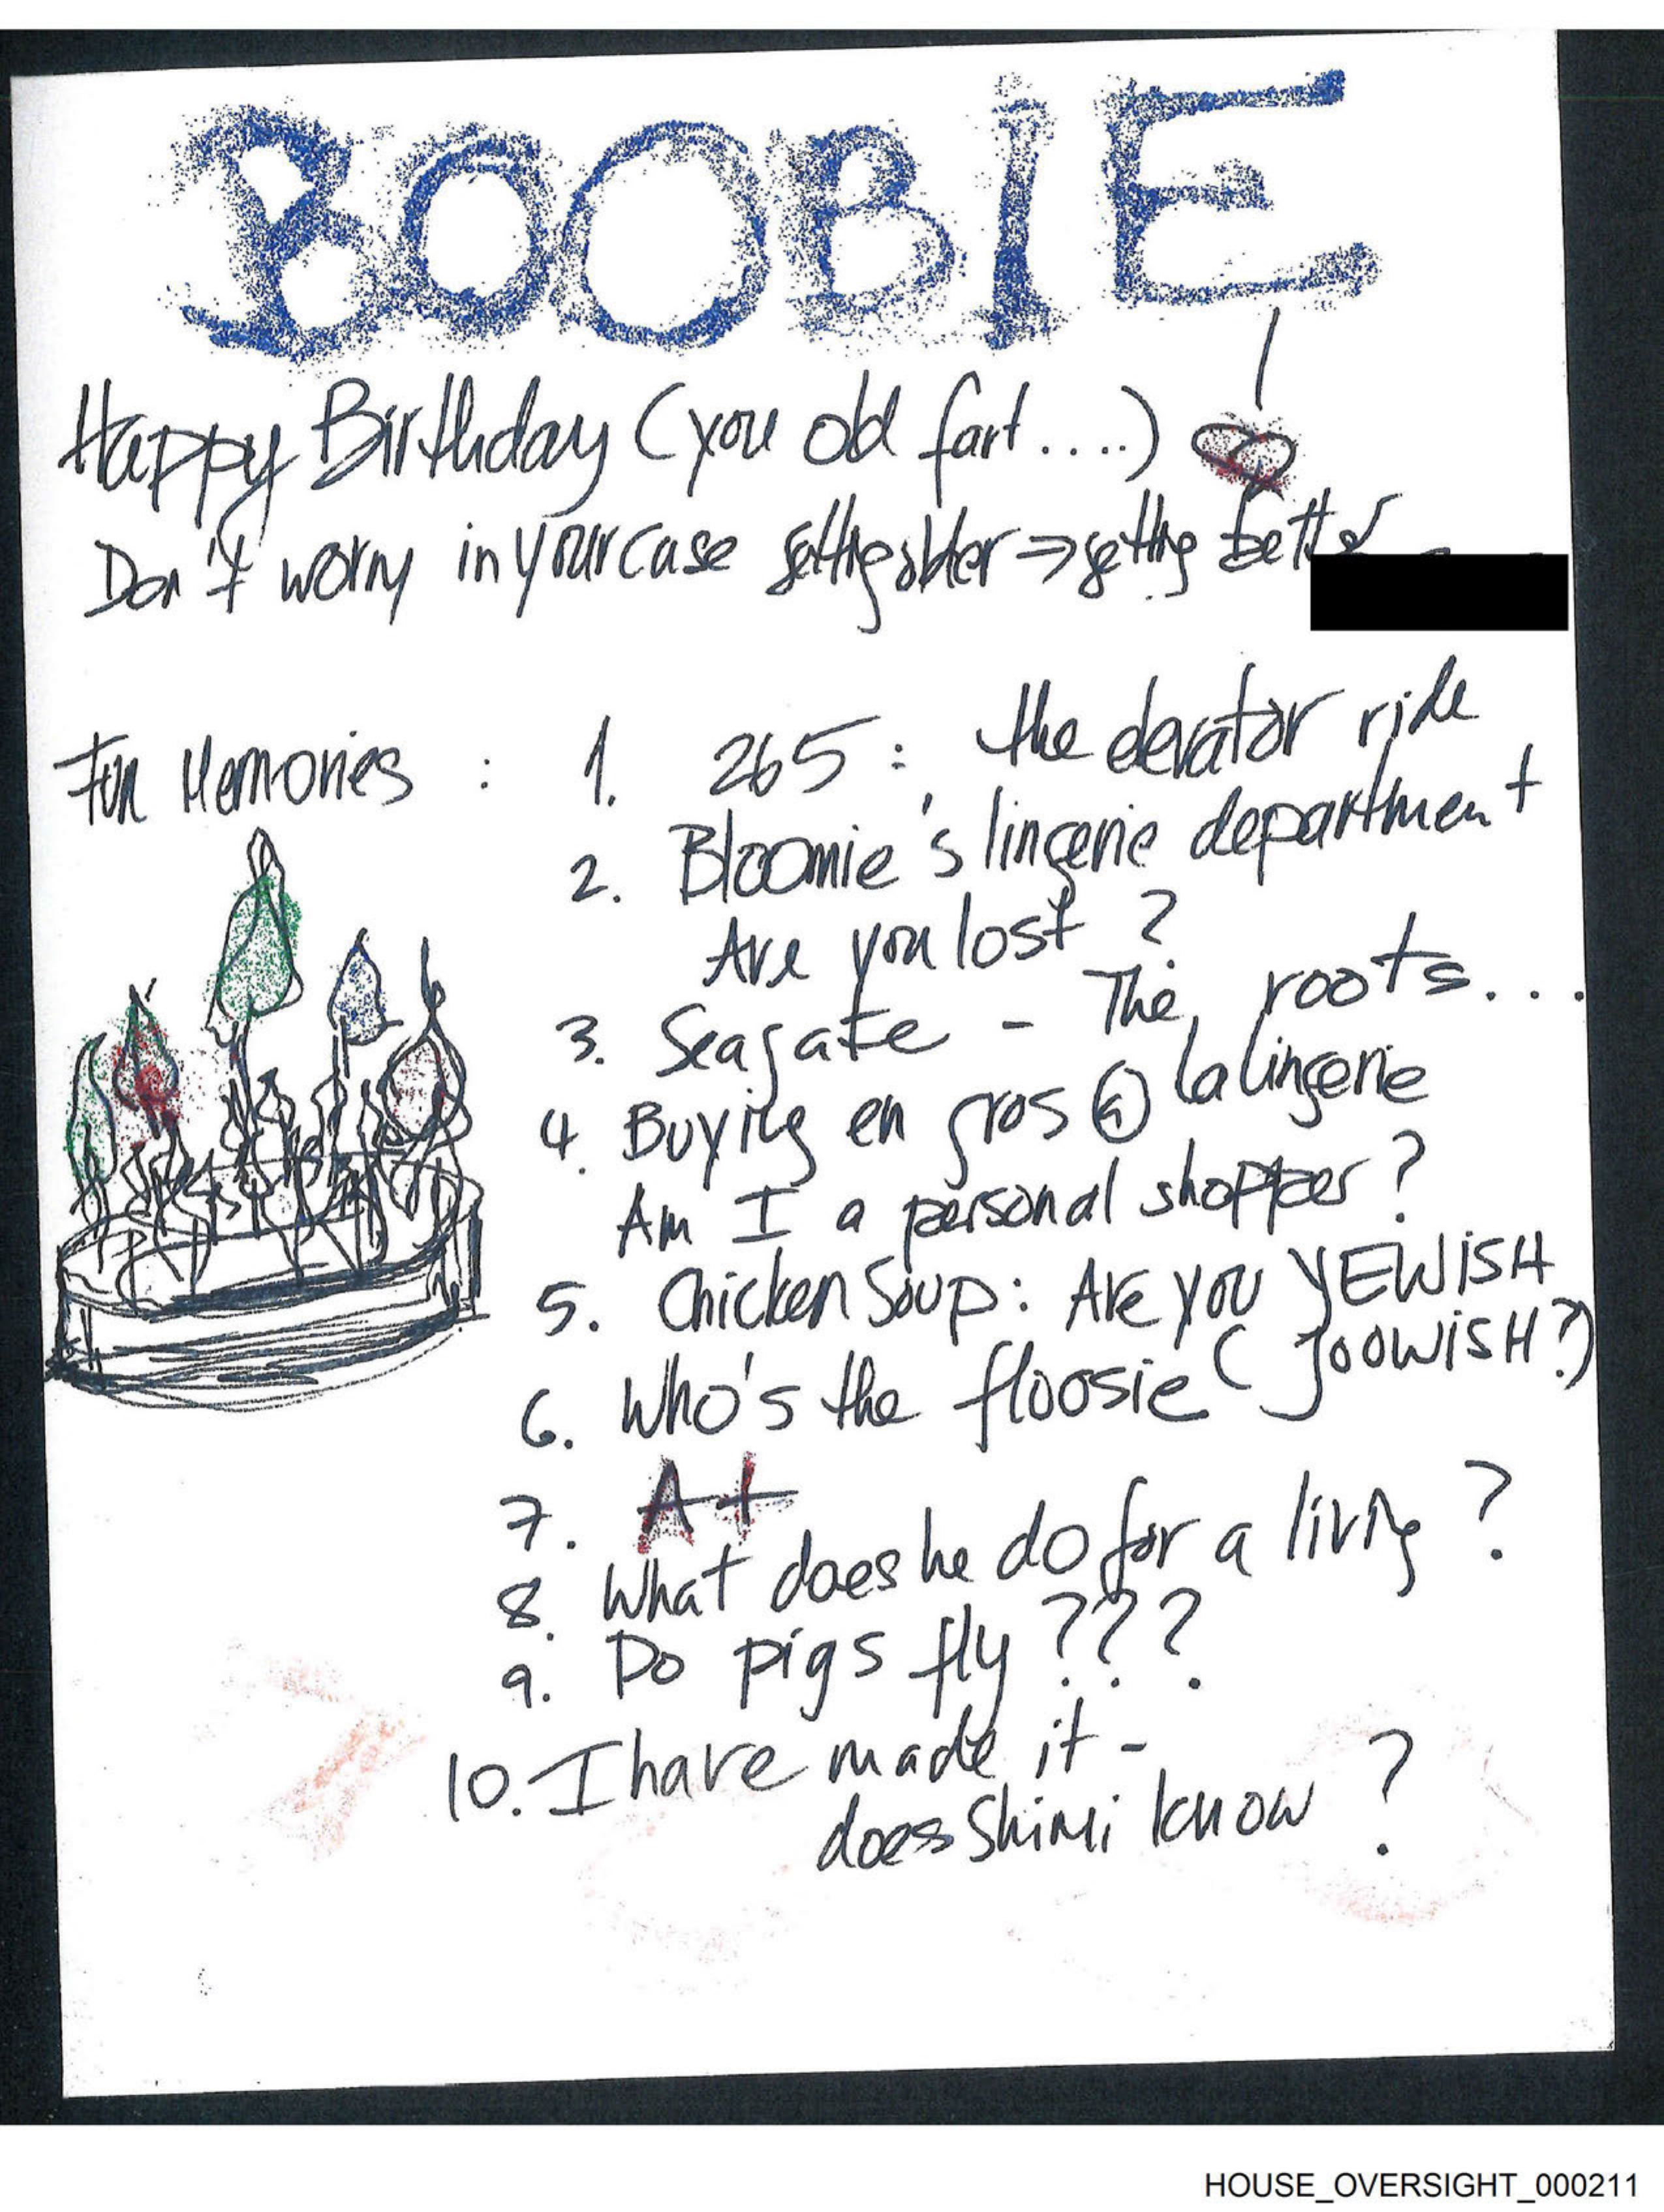 BOOBIE
Happy Birthday (you old fart....)
Don't worry in your case getting older ⇒ getting better
Fun Memories : 1. 265 : the elevator ride
2. Bloomie's lingerie department
Are you lost ?
3. Seagate - The roots...
4. Buying en gros @ la lingerie
Am I a personal shopper ?
5. Chicken Soup : Are you YEWISH
( JOOWISH ?)
6. Who's the floosie
7. A+
8. What does he do for a living ?
9. Do pigs fly ???
10. I have made it -
does Shimi know ?
HOUSE_OVERSIGHT_000211